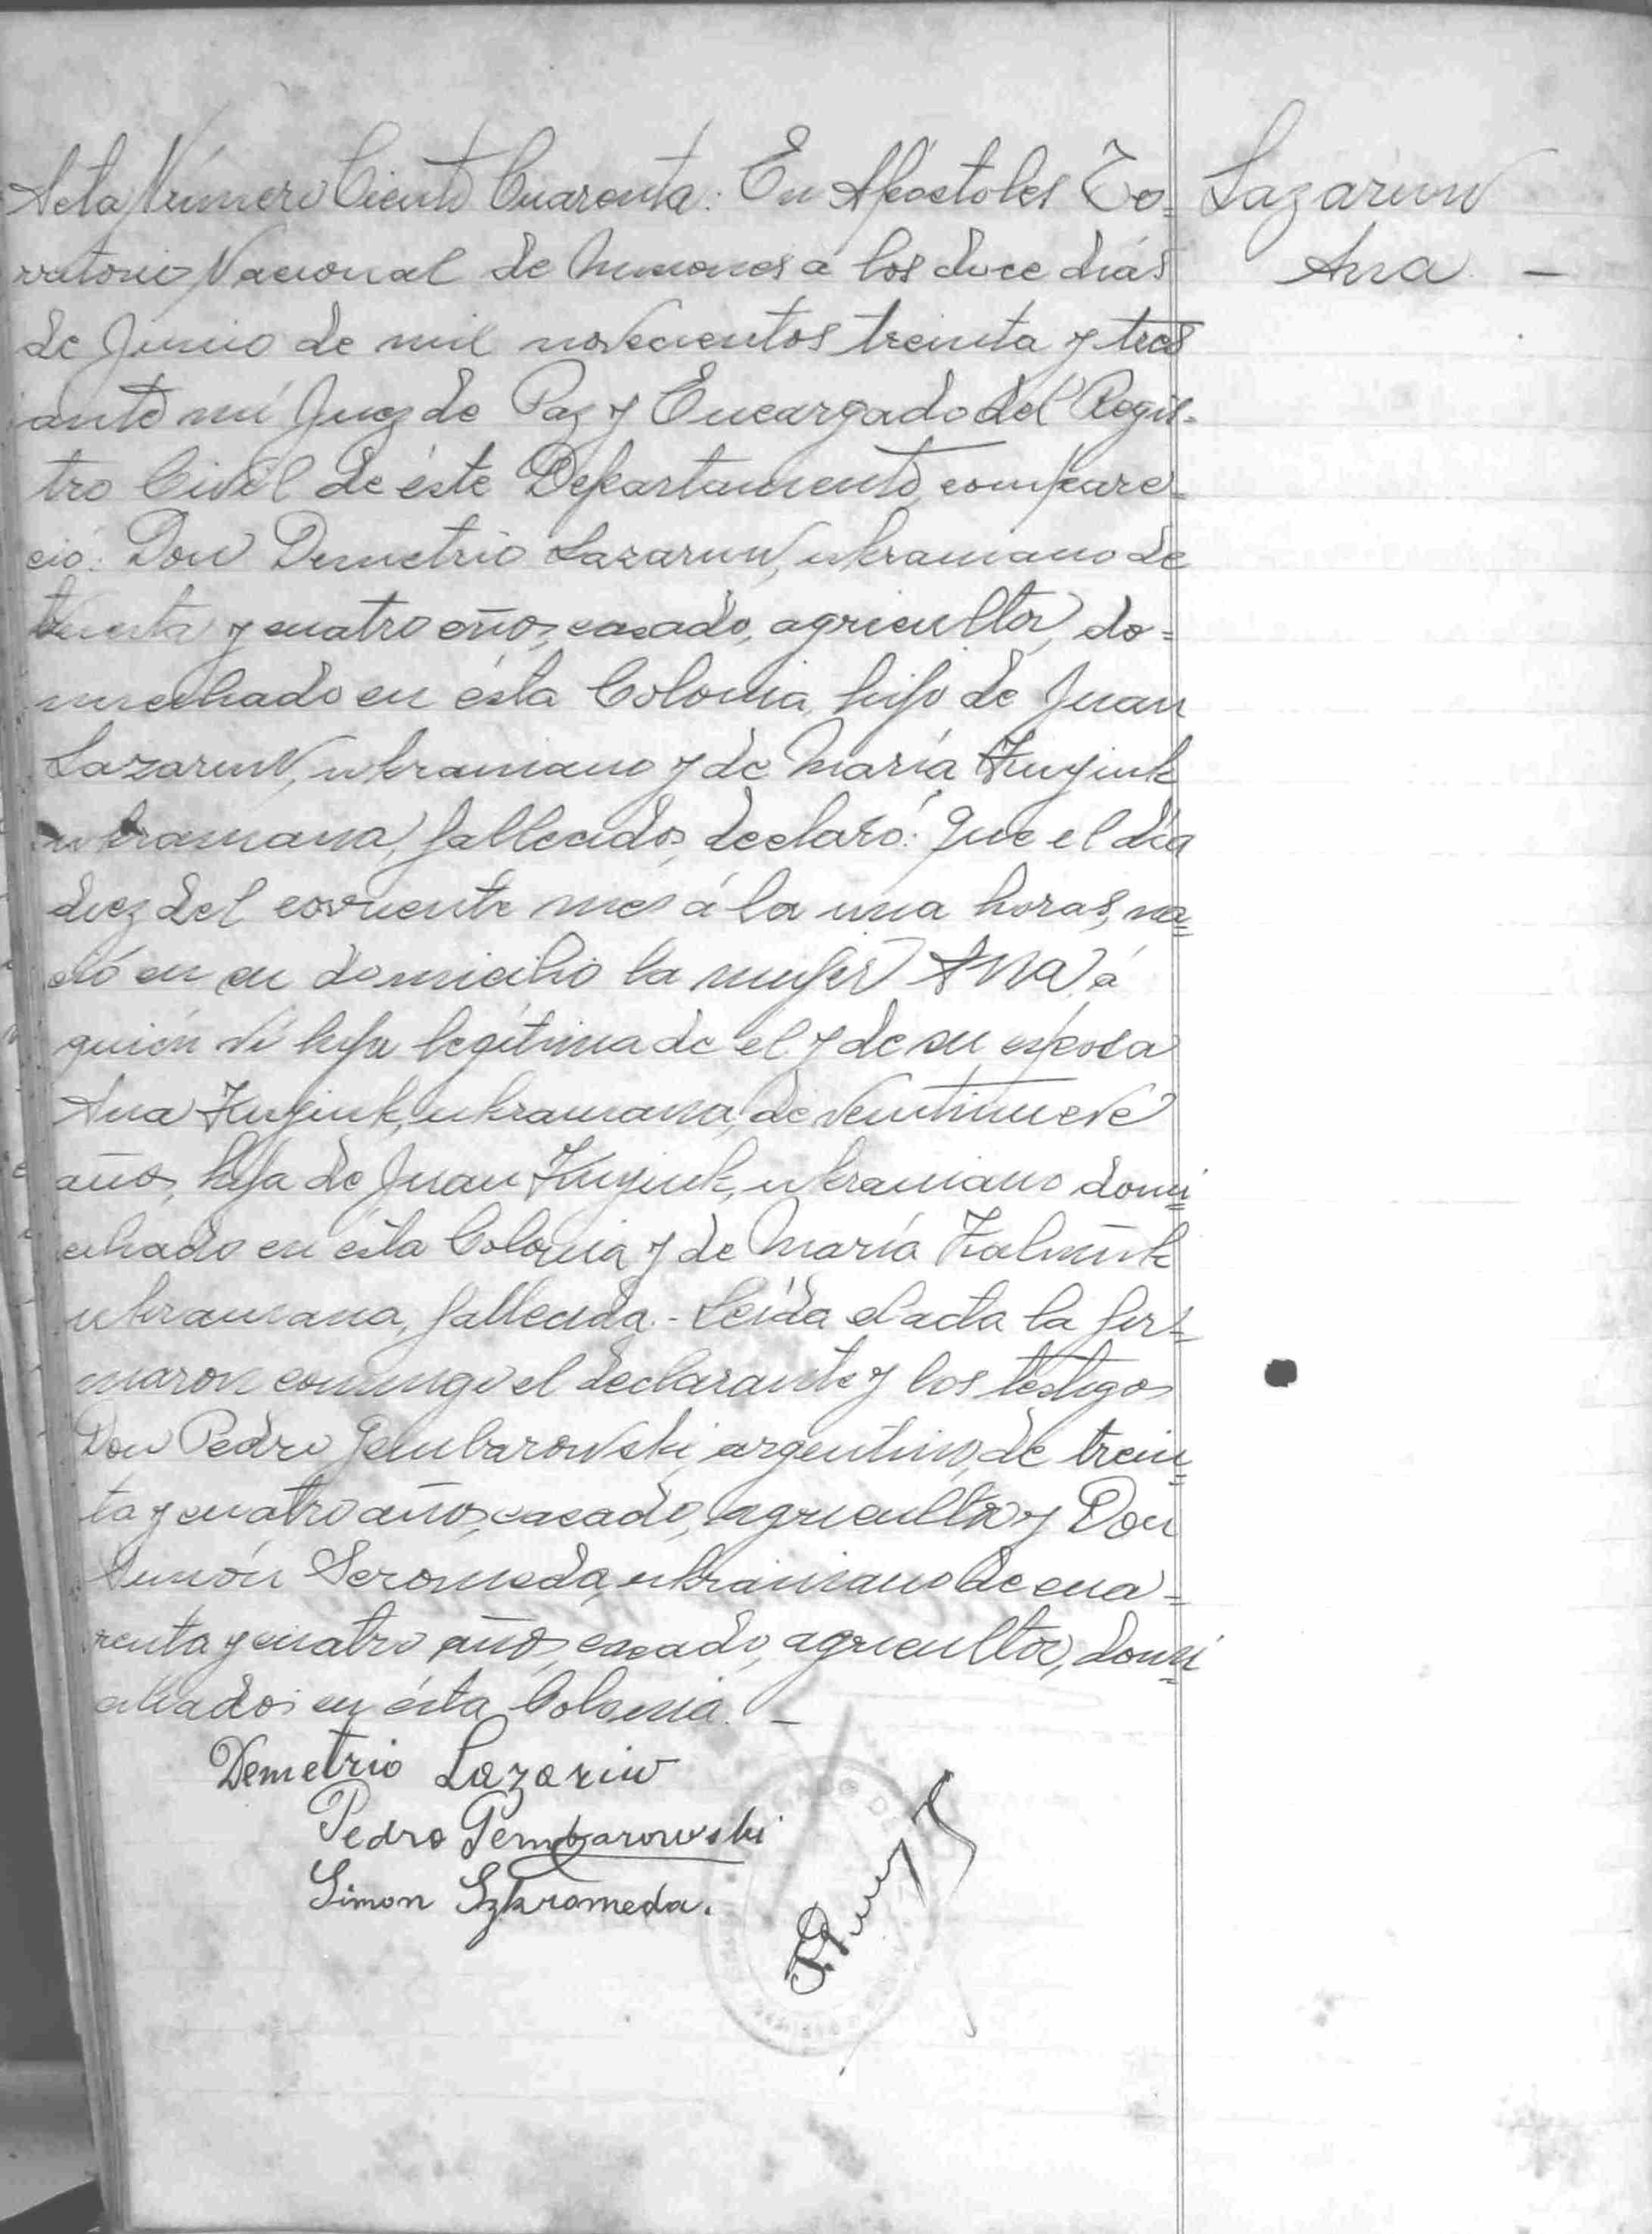 Acta Número Ciento Cuarenta: En Apóstoles Te=
rritorio Nacional de Misiones a los doce dias
de Junio de mil novecientos treinta y tres
ante mi Juez de Paz y Encargado del Regis=
tro Civil de éste Departamento, compare=
ció: Don Demetrio Lazaruw, ukraniano de
y cuatro años, casado, agricultor, do=
miciliado en ésta Colonia, hijo de Juan
Lazaruw, ukraniano y de María
ukraniana, fallecidos, declaró: Que el día
diez del corriente mes á la una horas, na=
ció en su domicilio la mujer ANA á
quién ví hija legítima de el y de su esposa
Ana ukraniana, de veintinueve
años, hija de Juan ukraniano domi=
ciliado en ésta Colonia y de María
ukraniana, fallecida.- Leída el acta la fir=
maron conmigo el declarante y los testigos
Don Pedro Gembarowski, argentino, de trein=
ta y cuatro años, casado, agricultor y Don
Simón Scromeda, ukraniano de cua=
renta y cuatro años, casado, agricultor, domi=
ciliados en ésta Colonia. -
Demetrio Lazariw
Pedro Gembarowski
Simon Szkromeda.
Lazaruw
Ana. -